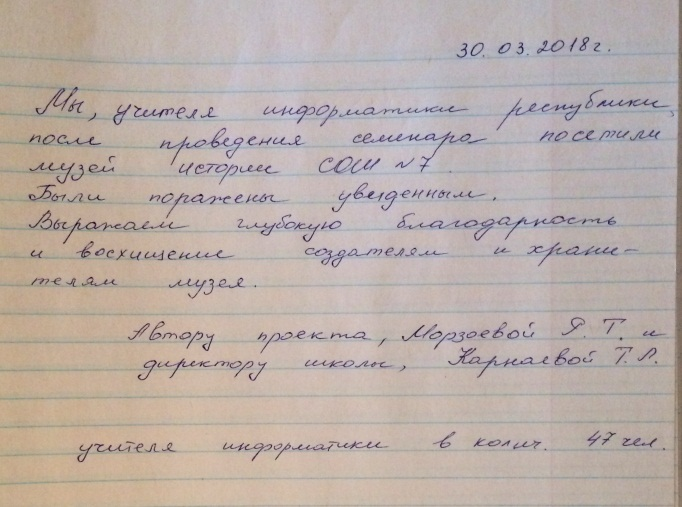 30. 03. 2018г.
Мы, учителя информатики республики,
после проведения семинара посетили
музей истории СОШ №7.
Были поражены увиденным.
Выражаем глубокую благодарность
и восхищение создателям и храни-
телям музея.
Автору проекта, Морзоевой Р. Т. и
директору школы, Карнаевой Т. Л.
учителя информатики в колич. 47 чел.